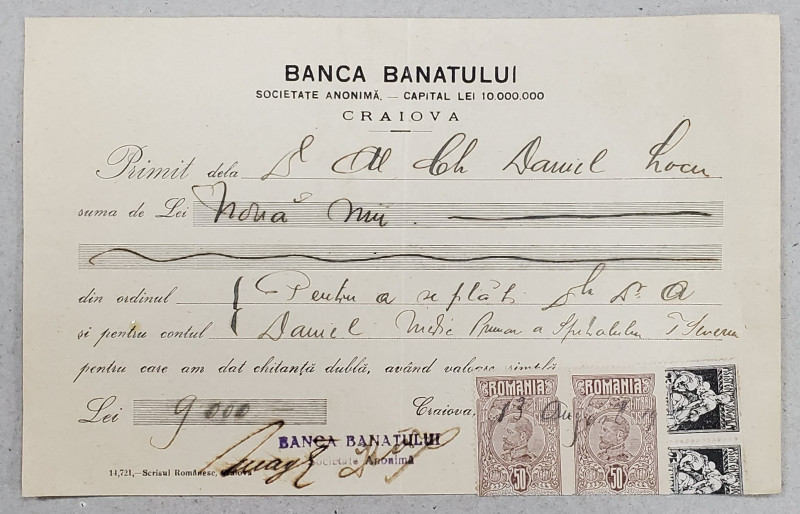 BANCA BANATULUI
SOCIETATE ANONIMĂ. — CAPITAL LEI 10.000.000
CRAIOVA
Primit dela Dl Ch Daniel Locu
suma de Lei Nouă mii
din ordinul Pentru a se plăti Dr A
și pentru contul Daniel Medic Primar a Spitalului T Severin
pentru care am dat chitanță dublă, având valoare simplă
Lei 9000 Craiova, 13 Aug
ROMANIA ROMANIA
50 50
BANCA BANATULUI
Societate Anonimă
14,721,—Scrisul Românesc, Craiova